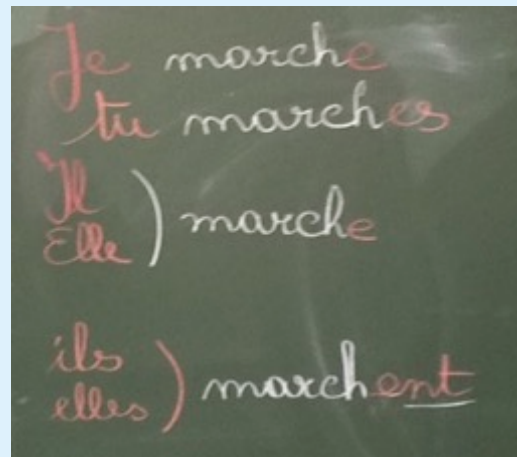 Je marche
tu marches
Il
Elle ) marche
ils
elles ) marchent